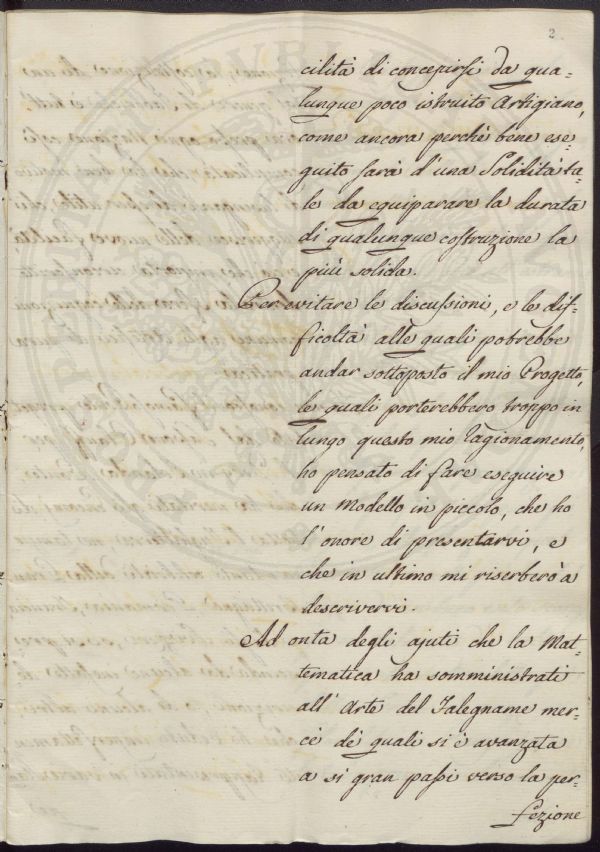 2
cilità di concepirsi da qua-
lunque poco istruito Artigiano,
come ancora perchè bene ese-
guito sarà d'una Solidità ta-
le da equiparare la durata
di qualunque costruzione la
più solida.
Per evitare le discussioni, e le dif-
ficoltà alle quali potrebbe
andar sottoposto il mio Progetto,
le quali porterebbero troppo in
lungo questo mio ragionamento,
ho pensato di fare eseguire
un Modello in piccolo, che ho
l'onore di presentarvi, e
che in ultimo mi riserberò a
descrivervi.
Ad onta degli ajuti che la Mat-
tematica ha somministrati
all'Arte del Falegname mer-
cè dè quali si è avanzata
a si gran passi verso la per-
fezione